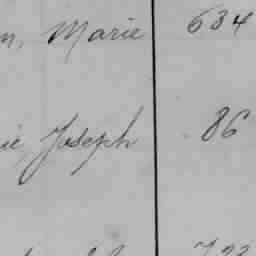 n, Marie 634
ie, Joseph 86